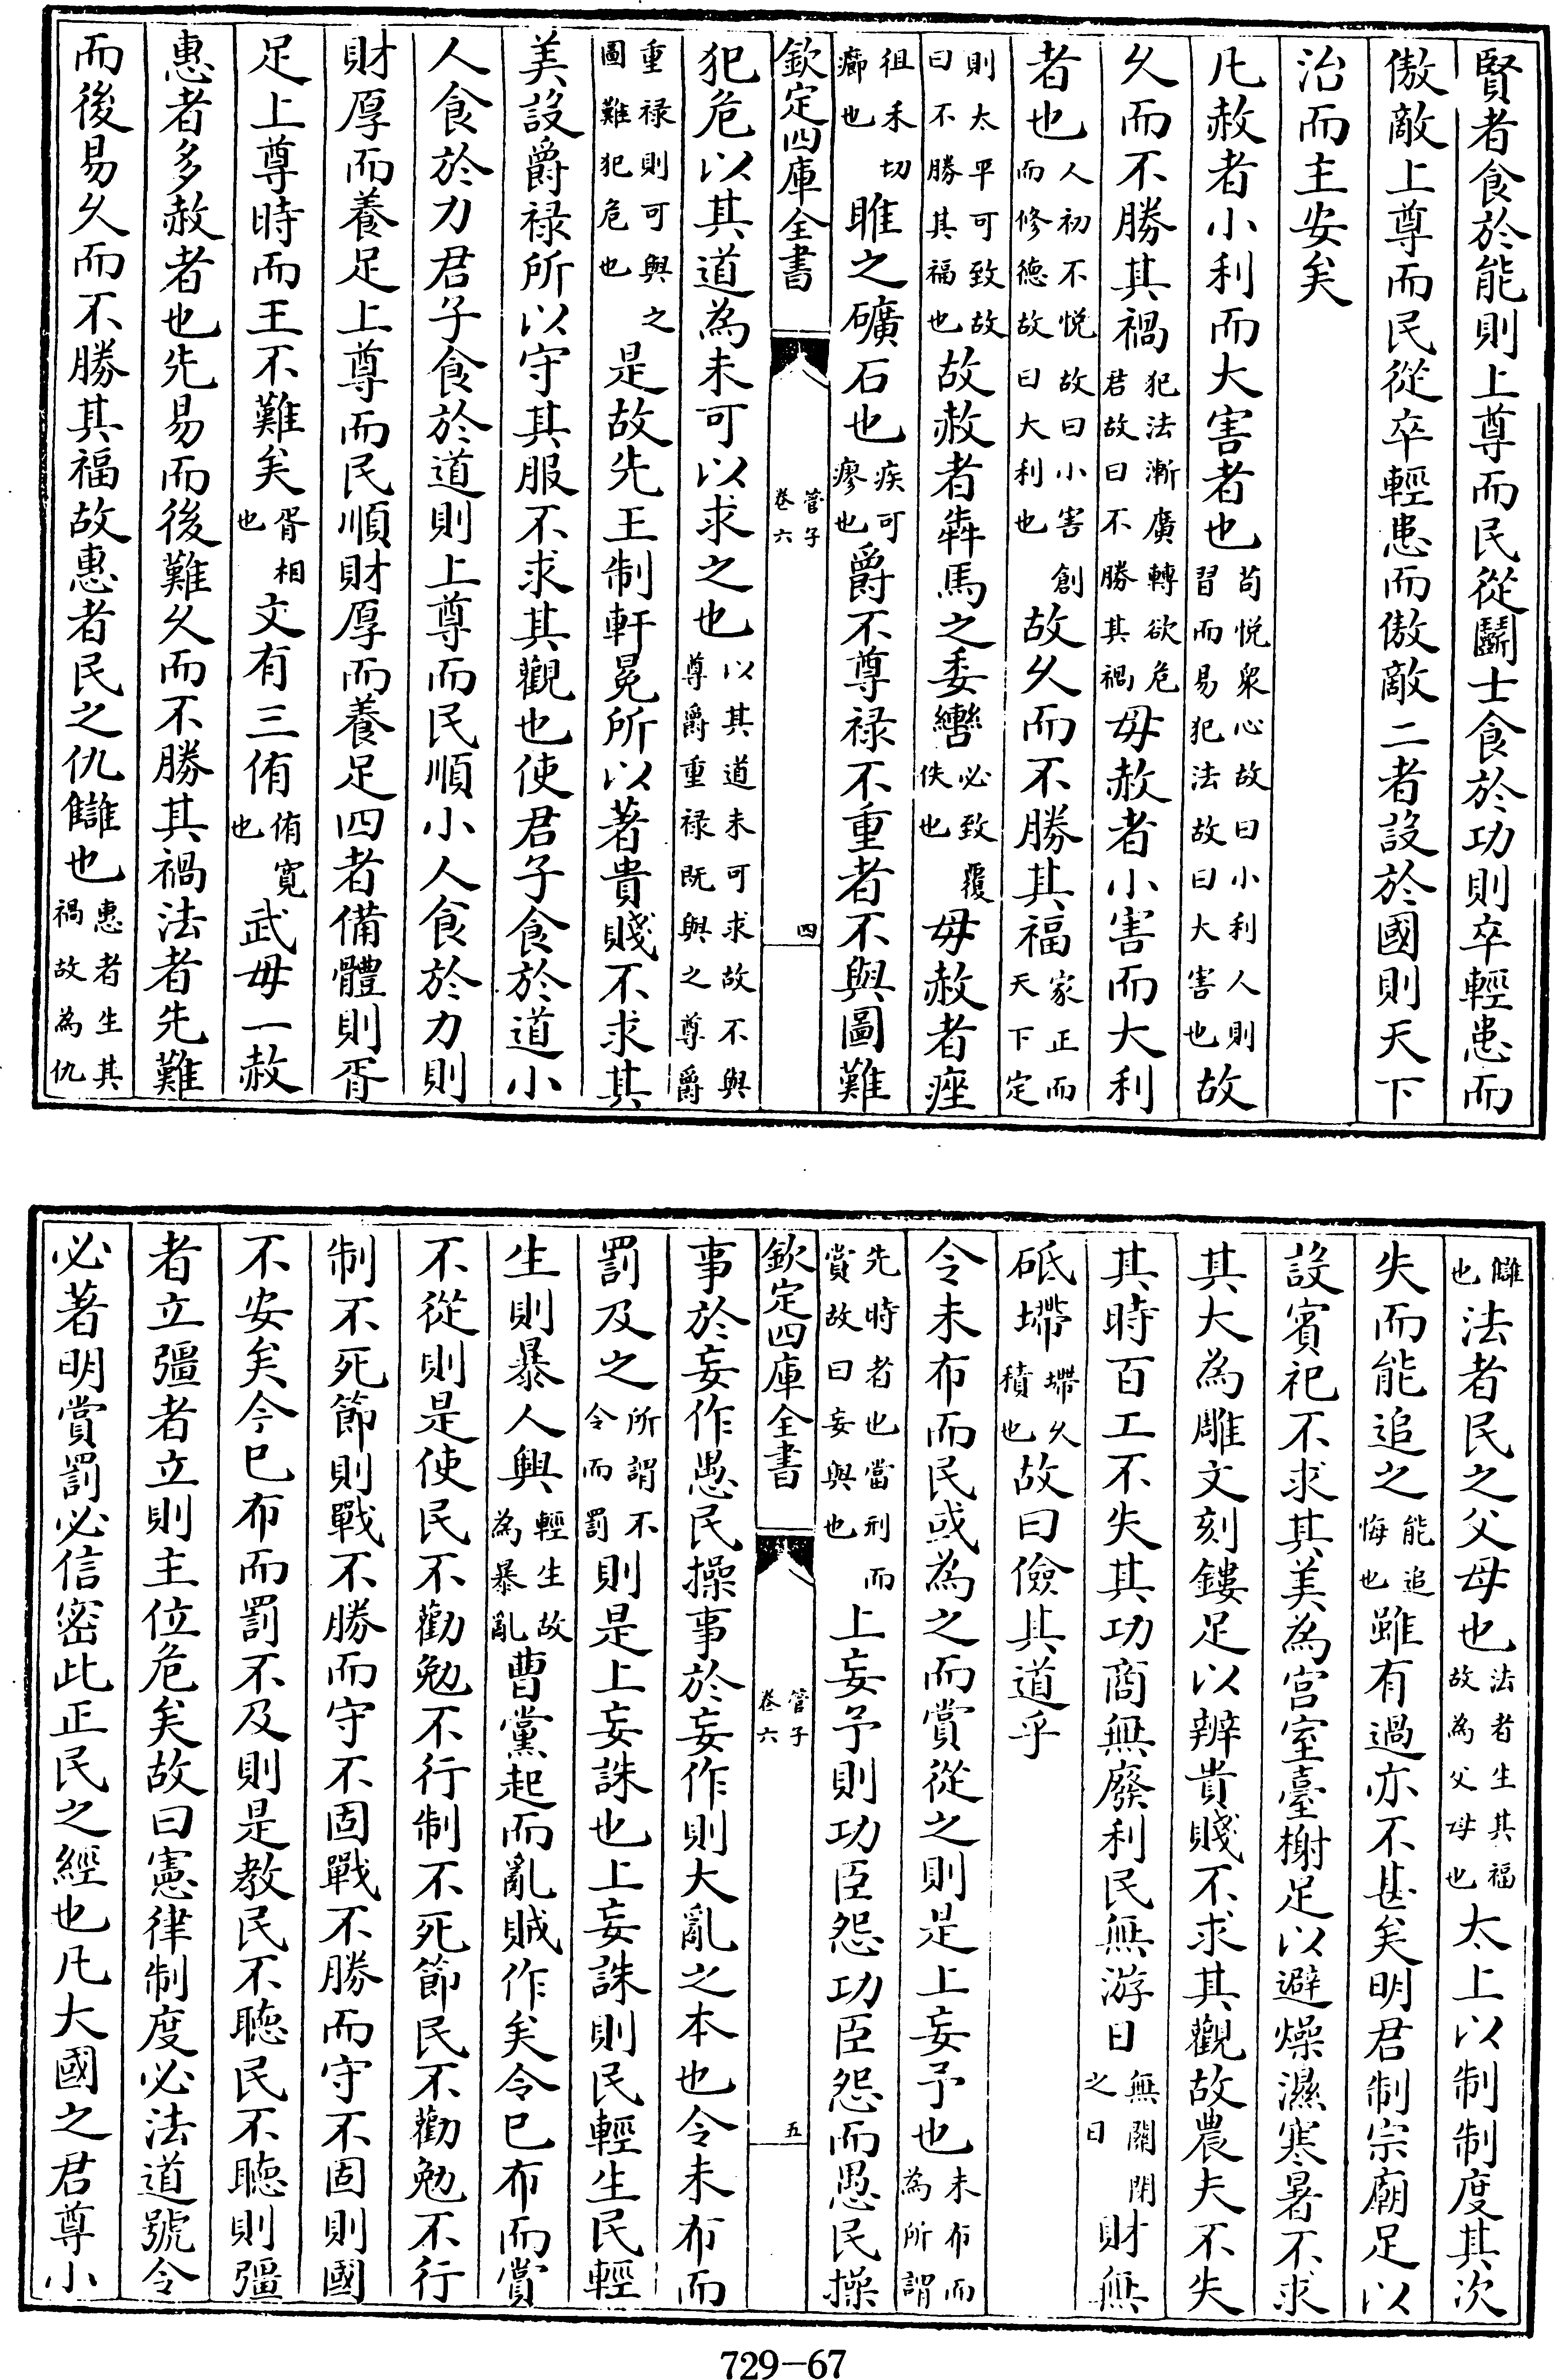 賢者食於能則上尊而民從鬬士食於功則卒輕患而
傲敵上尊而民從卒輕患而傲敵二者設於國則天下
治而主安矣
凡赦者小利而大害者也苟悦衆心故曰小利人則習而易犯法故曰大害也故
久而不勝其禍犯法漸廣轉欲危君故曰不勝其禍毋赦者小害而大利
者也人初不悦故曰小害創而修德故曰大利也故久而不勝其福家正而天下定
則太平可致故曰不勝其福也故赦者犇馬之委轡必致覆佚也毋赦者痤
徂禾切癤也睢之礦石也疾可瘳也爵不尊禄不重者不與圖難
欽定四庫全書
管子
卷六
四
犯危以其道為未可以求之也以其道未可求故不與尊爵重禄既與之尊爵
重禄則可與之圖難犯危也是故先王制軒冕所以著貴賤不求其
美設爵禄所以守其服不求其觀也使君子食於道小
人食於力君子食於道則上尊而民順小人食於力則
財厚而養足上尊而民順財厚而養足四者備體則胥
足上尊時而王不難矣胥相也文有三侑侑寛也武毋一赦
惠者多赦者也先易而後難久而不勝其禍法者先難
而後易久而不勝其福故惠者民之仇讎也惠者生其禍故為仇
讎也法者民之父母也法者生其福故為父母也太上以制制度其次
失而能追之能追悔也雖有過亦不甚矣明君制宗廟足以
設賓祀不求其美為宫室臺榭足以避燥濕寒暑不求
其大為雕文刻鏤足以辨貴賤不求其觀故農夫不失
其時百工不失其功商無廢利民無游日無閑閒之日財無
砥墆墆久積也故曰儉其道乎
令未布而民或為之而賞從之則是上妄予也未布而為所謂
先時者也當刑而賞故曰妄與也上妄予則功臣怨功臣怨而愚民操
欽定四庫全書
管子
卷六
五
事於妄作愚民操事於妄作則大亂之本也令未布而
罰及之所謂不令而罰則是上妄誅也上妄誅則民輕生民輕
生則暴人興輕生故為暴亂曹黨起而亂賊作矣令已布而賞
不從則是使民不勸勉不行制不死節民不勸勉不行
制不死節則戰不勝而守不固戰不勝而守不固則國
不安矣令已布而罰不及則是教民不聽民不聽則彊
者立彊者立則主位危矣故曰憲律制度必法道號令
必著明賞罰必信密此正民之經也凡大國之君尊小
729-67